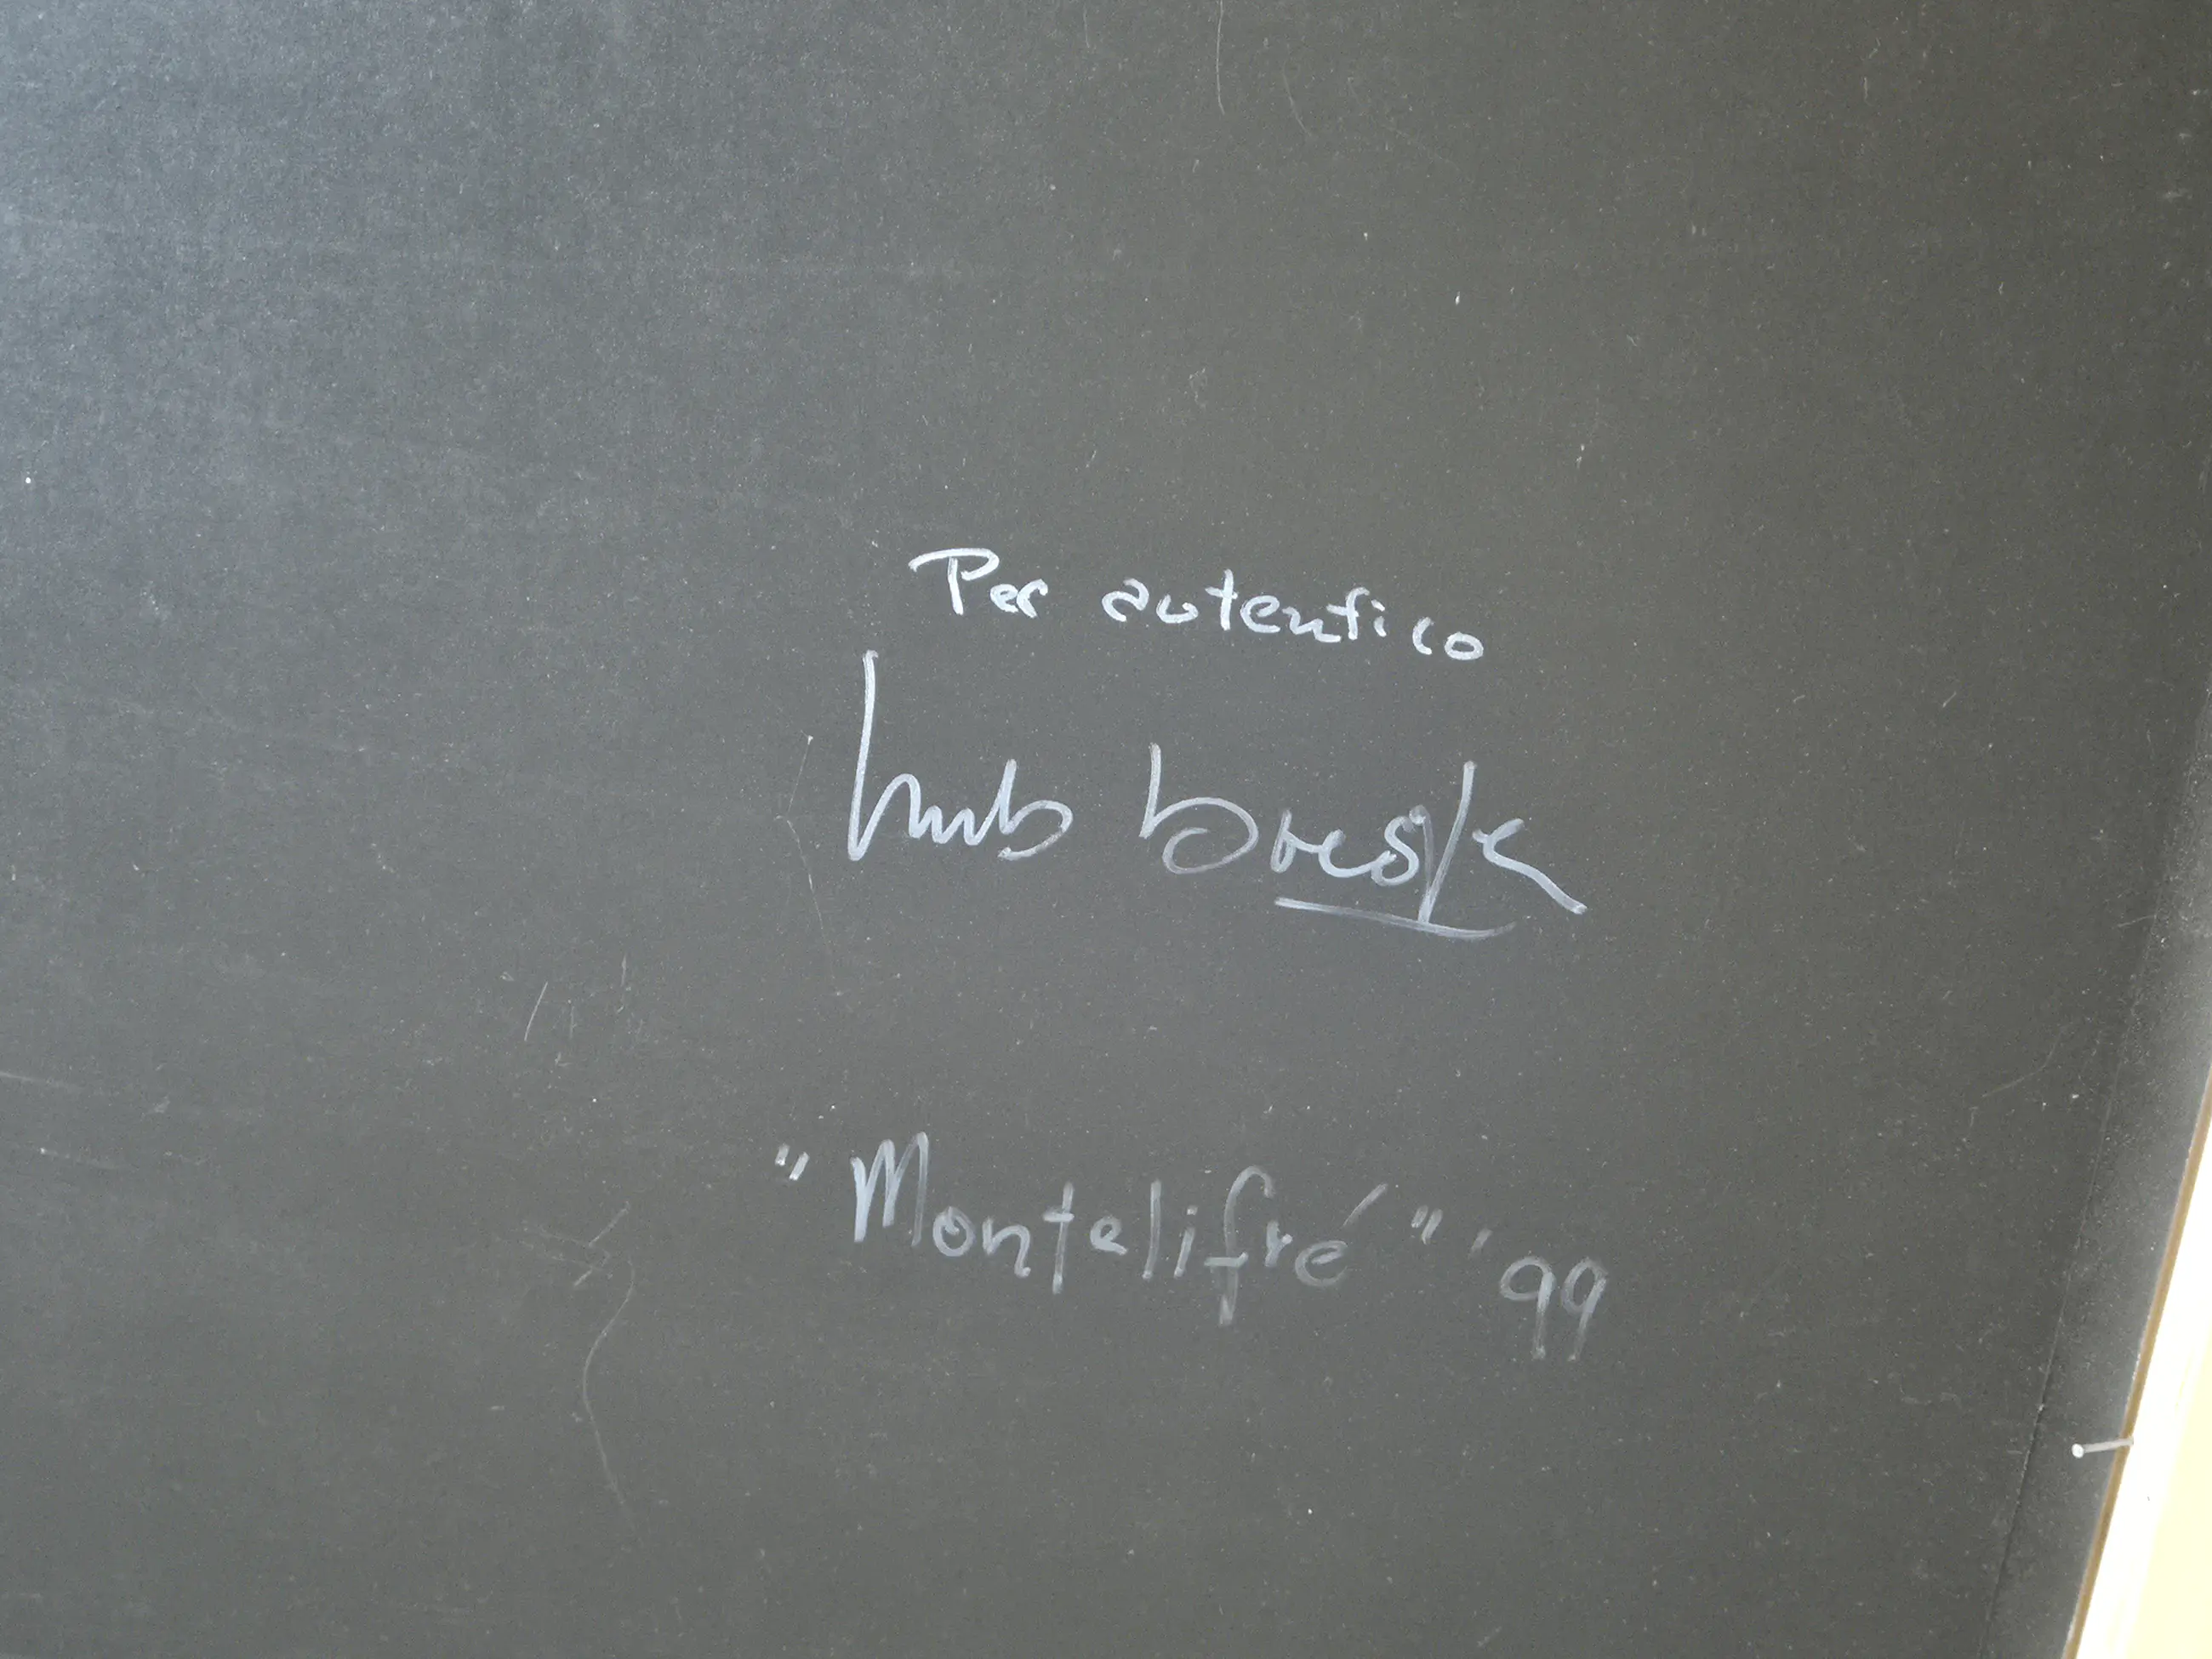 Per autentico
"Montelifré" '99